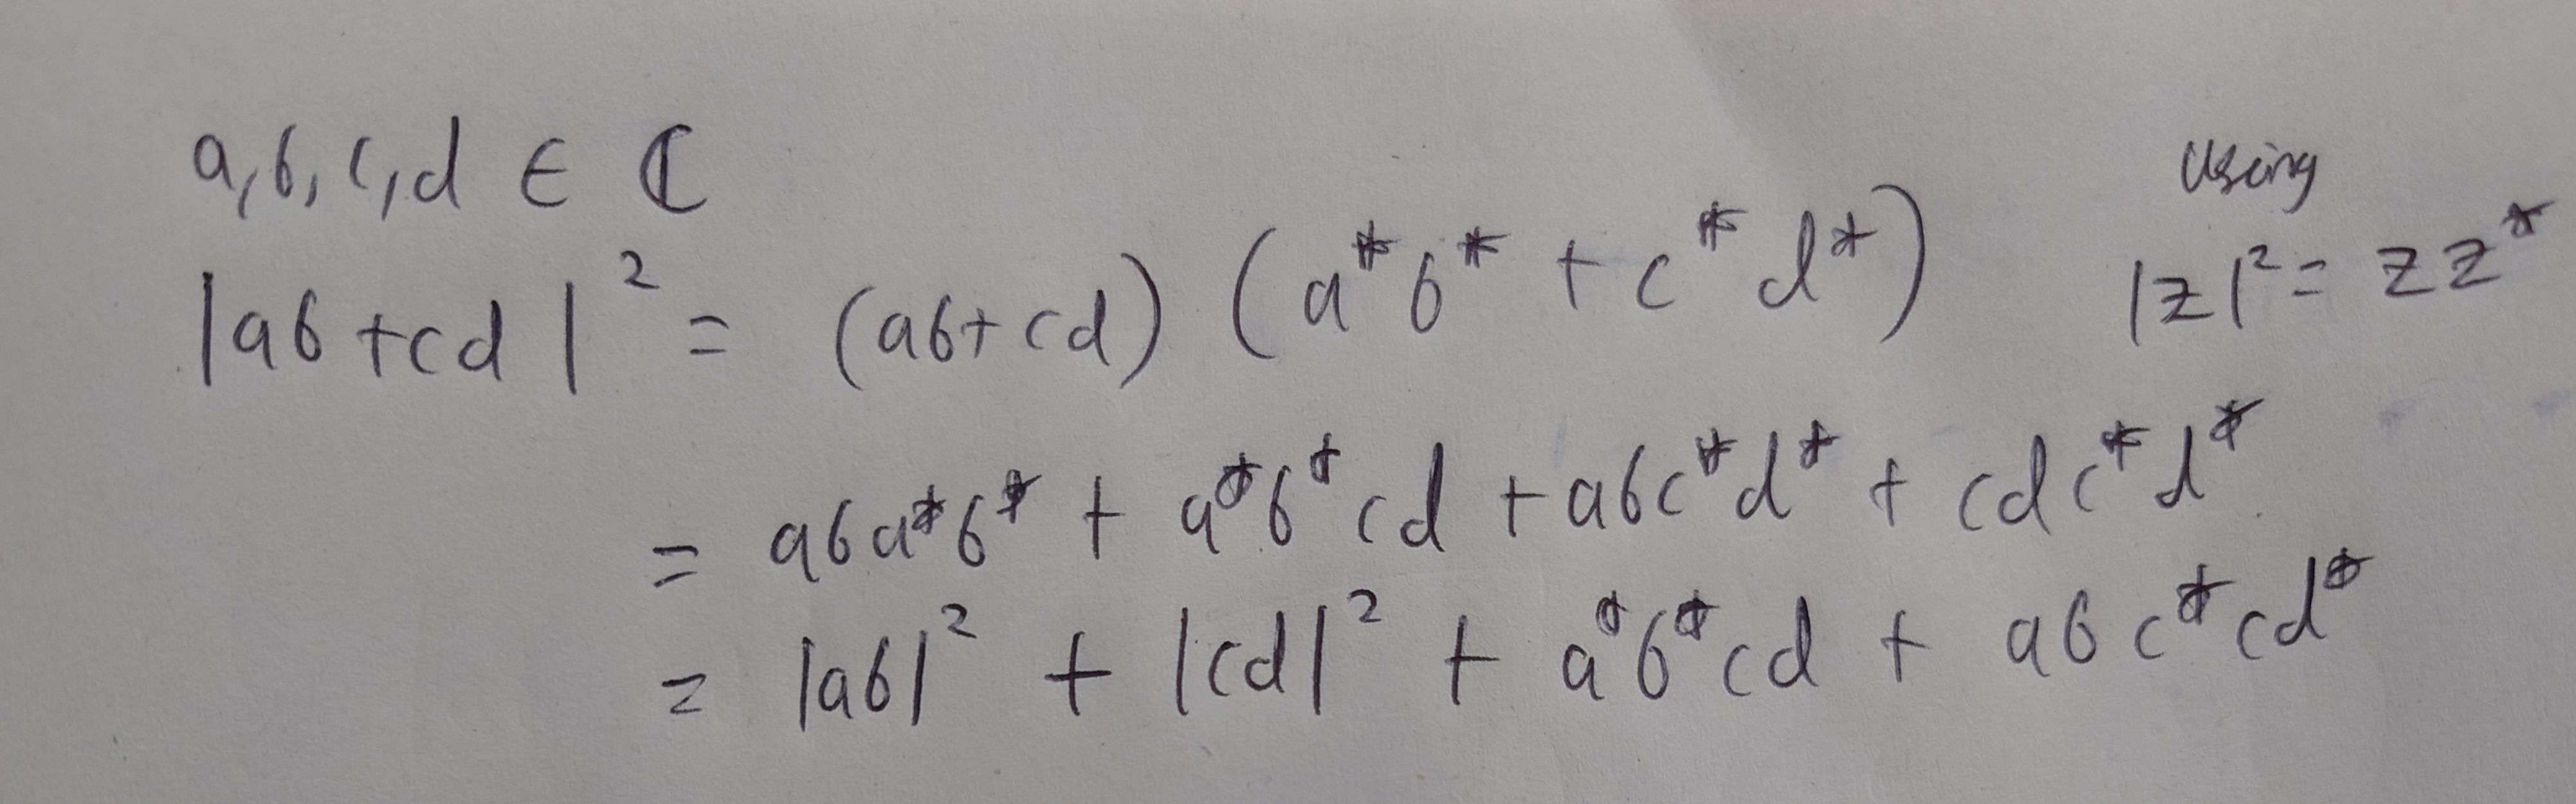 a, b, c, d ∈ ℂ
Using
|ab + cd|² = (ab + cd) (a*b* + c*d*)
|z|² = zz*
= aba*b* + a*b*cd + abc*d* + cdc*d*
= |ab|² + |cd|² + a*b*cd + abc*cd*